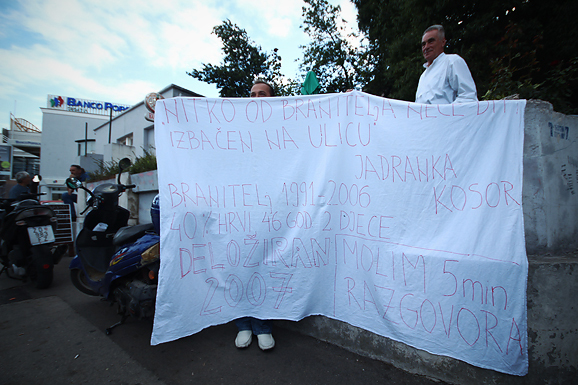 BANCO POPOLARE
NITKO OD BRANITELJA NEĆE BITI
IZBAČEN NA ULICU
JADRANKA
KOSOR
BRANITELJ 1991-2006
40% HRVI 46 GOD. 2 DJECE
DELOŽIRAN
2007
MOLIM 5 min
RAZGOVORA